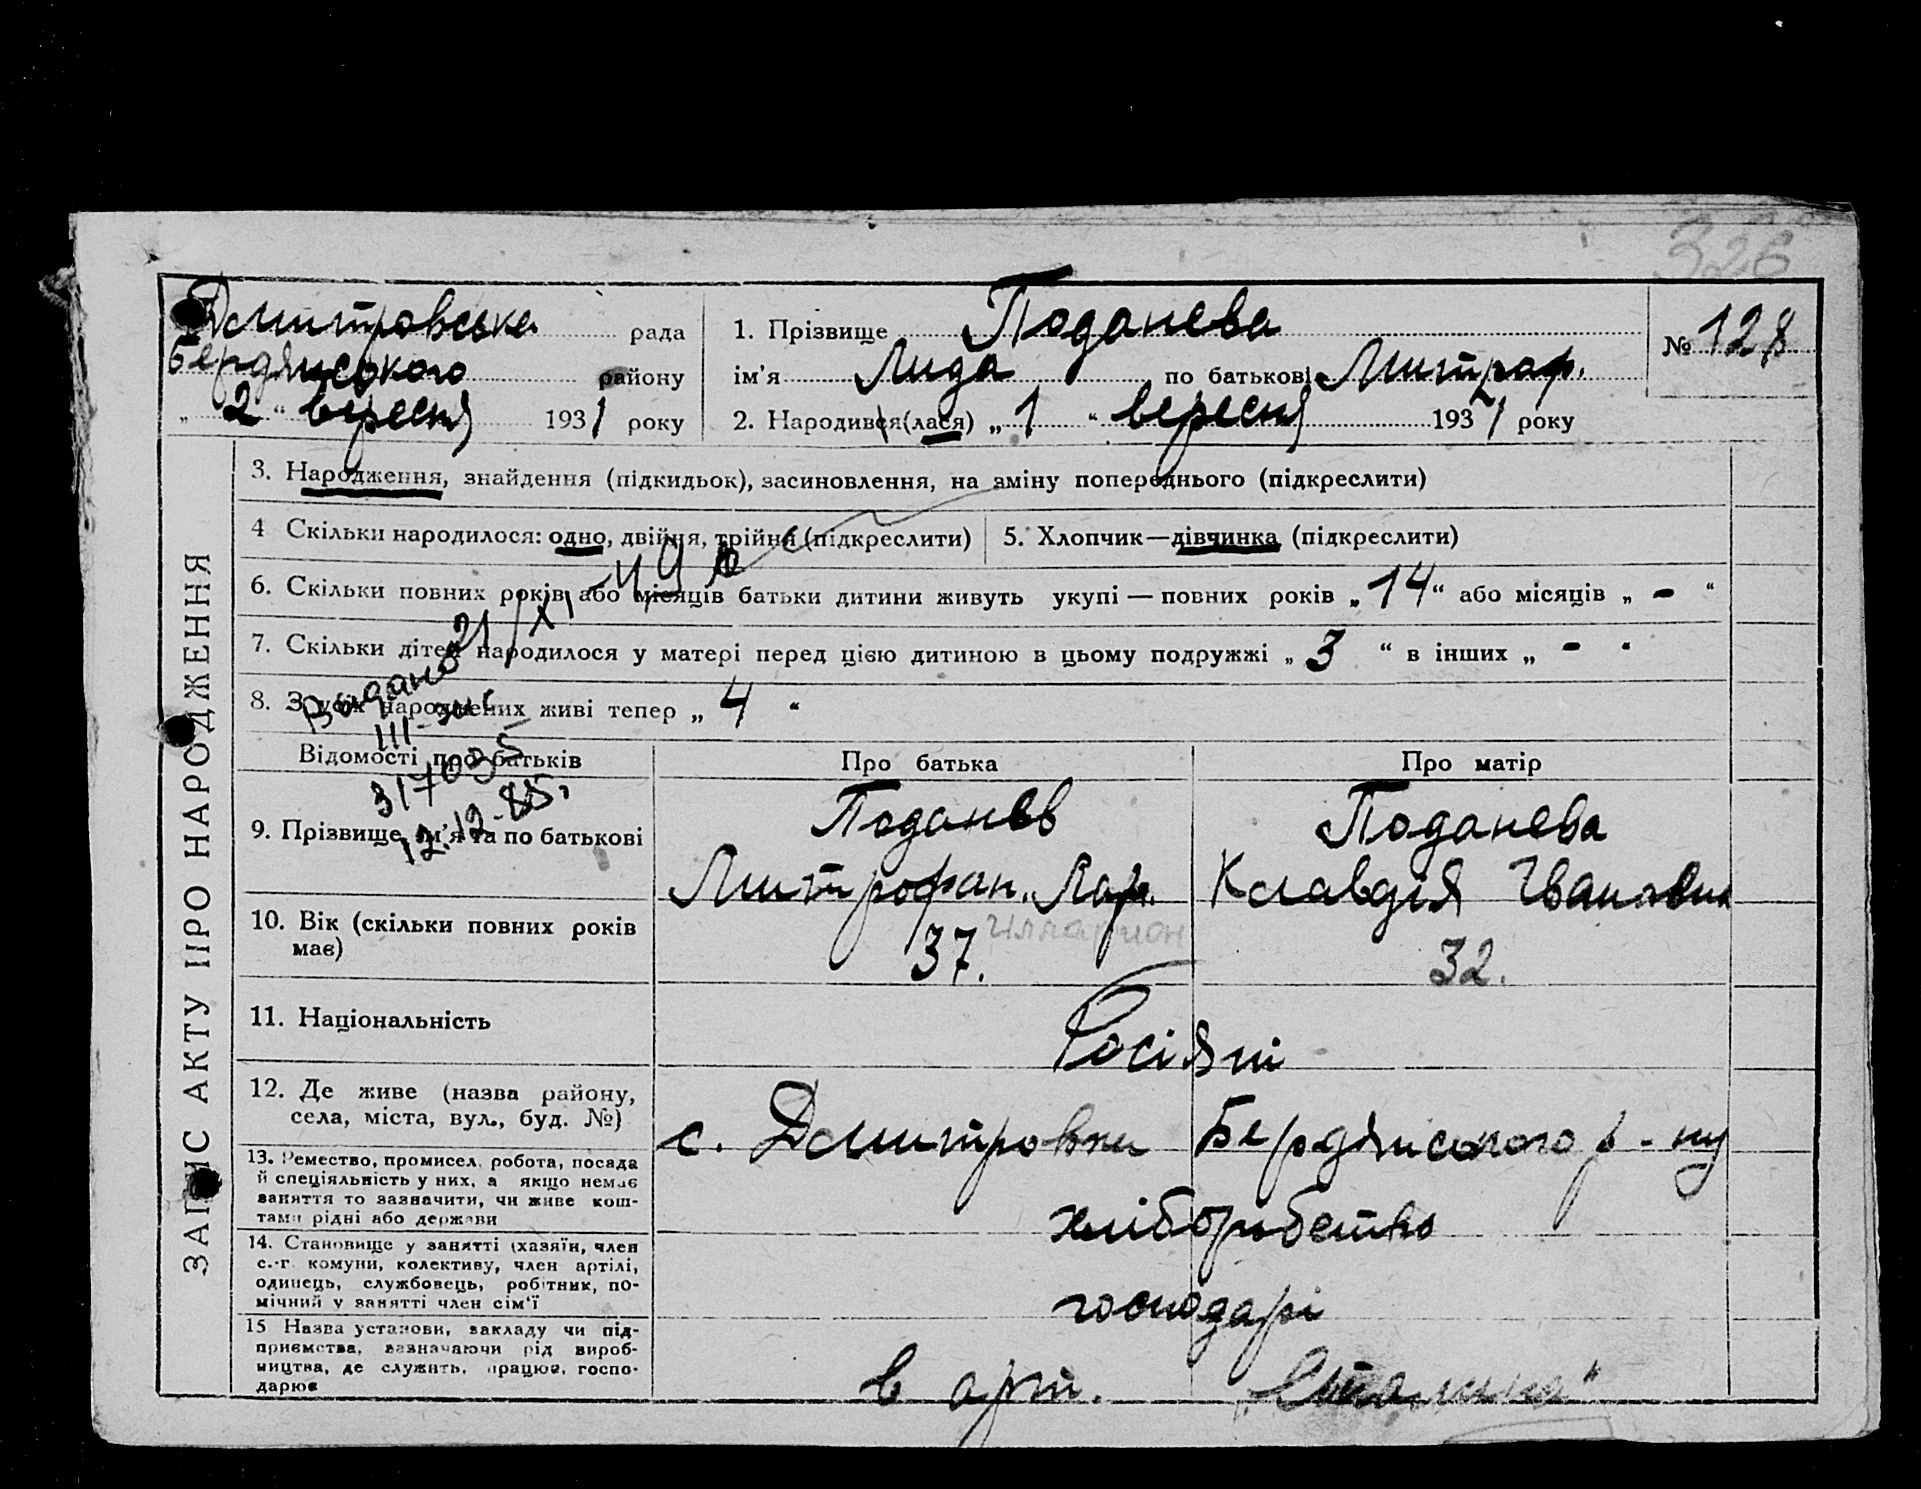 326
Дмитровська рада
Бердянського району
„ 2 “ вересня 1931 року
1. Прізвище Поданева
ім'я Лида по батькові Митроф.
2. Народився(лася) „ 1 “ вересня 1931 року
№ 128
ЗАПИС АКТУ ПРО НАРОДЖЕННЯ
3. Народження, знайдення (підкидьок), засиновлення, на зміну попереднього (підкреслити)
4 Скільки народилося: одно, двійня, трійня (підкреслити)
5. Хлопчик—дівчинка (підкреслити)
6. Скільки повних років або місяців батьки дитини живуть укупі — повних років „ 14 “ або місяців „ - “
7. Скільки дітей народилося у матері перед цією дитиною в цьому подружжі „ 3 “ в інших „ - “
8. З усіх народжених живі тепер „ 4 “
Видано 21/XI-49
III-
317035
12.12.85.
Відомості про батьків
Про батька
Про матір
9. Прізвище, ім'я та по батькові
Поданєв
Митрофан. Лар.
Поданева
Клавдія Івановна
10. Вік (скільки повних років
має)
Ілларион
37.
32.
11. Національність
Росіяни
12. Де живе (назва району,
села, міста, вул., буд. №)
с. Дмитровки Бердянського р-ну
13. Ремество, промисел, робота, посада
й спеціяльність у них, а якщо немає
заняття то зазначити, чи живе кош-
тами рідні або держави
хліборобство
14. Становище у занятті (хазяїн, член
с.-г. комуни, колективу, член артілі,
одинець, службовець, робітник, по-
мічний у занятті член сім'ї
господарі
15 Назва установи, закладу чи під-
приємства, зазначаючи рід вироб-
ництва, де служить, працює, госпо-
дарює
в арт. „Сталина“